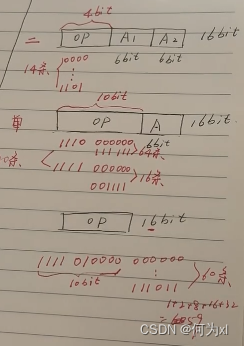 4bit
二 OP A1 A2 16bit
14条 0000 6bit 6bit
⋮
1101
10bit
单 OP A 16bit
1110 000000 6bit
111111 64条
1111 000000
001111 16条
OP 16bit
1111 010000 000000
10bit 111011 60条
CSDN @何为xl